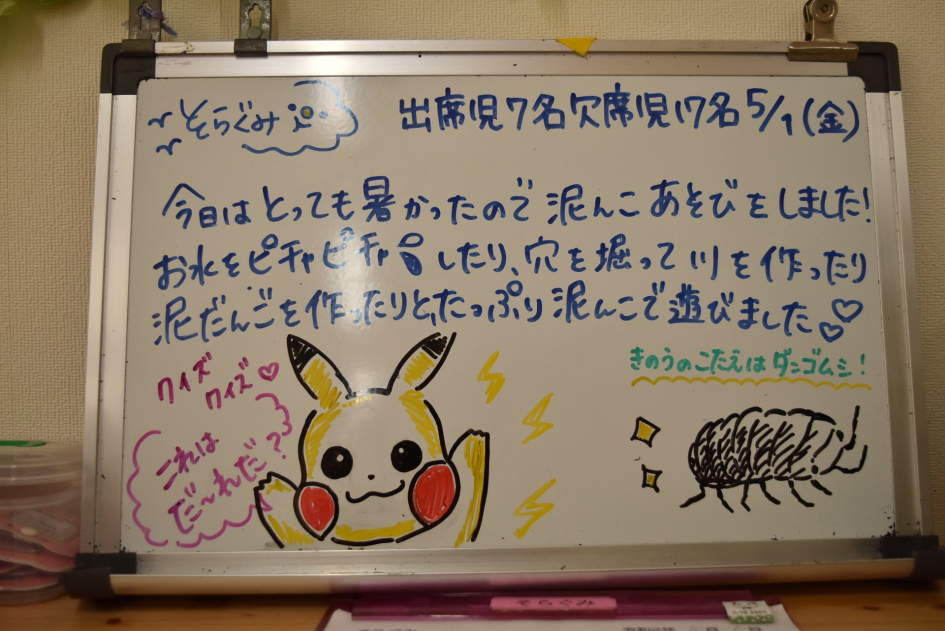 そらぐみ
出席児7名欠席児17名 5/1(金)
今日はとっても暑かったので泥んこあそびをしました!
お水をピチャピチャしたり、穴を掘って川を作ったり
泥だんごを作ったりと、たっぷり泥んこで遊びました
クイズ
クイズ
これは
だ〜れだ?
きのうのこたえはダンゴムシ!
そらぐみ